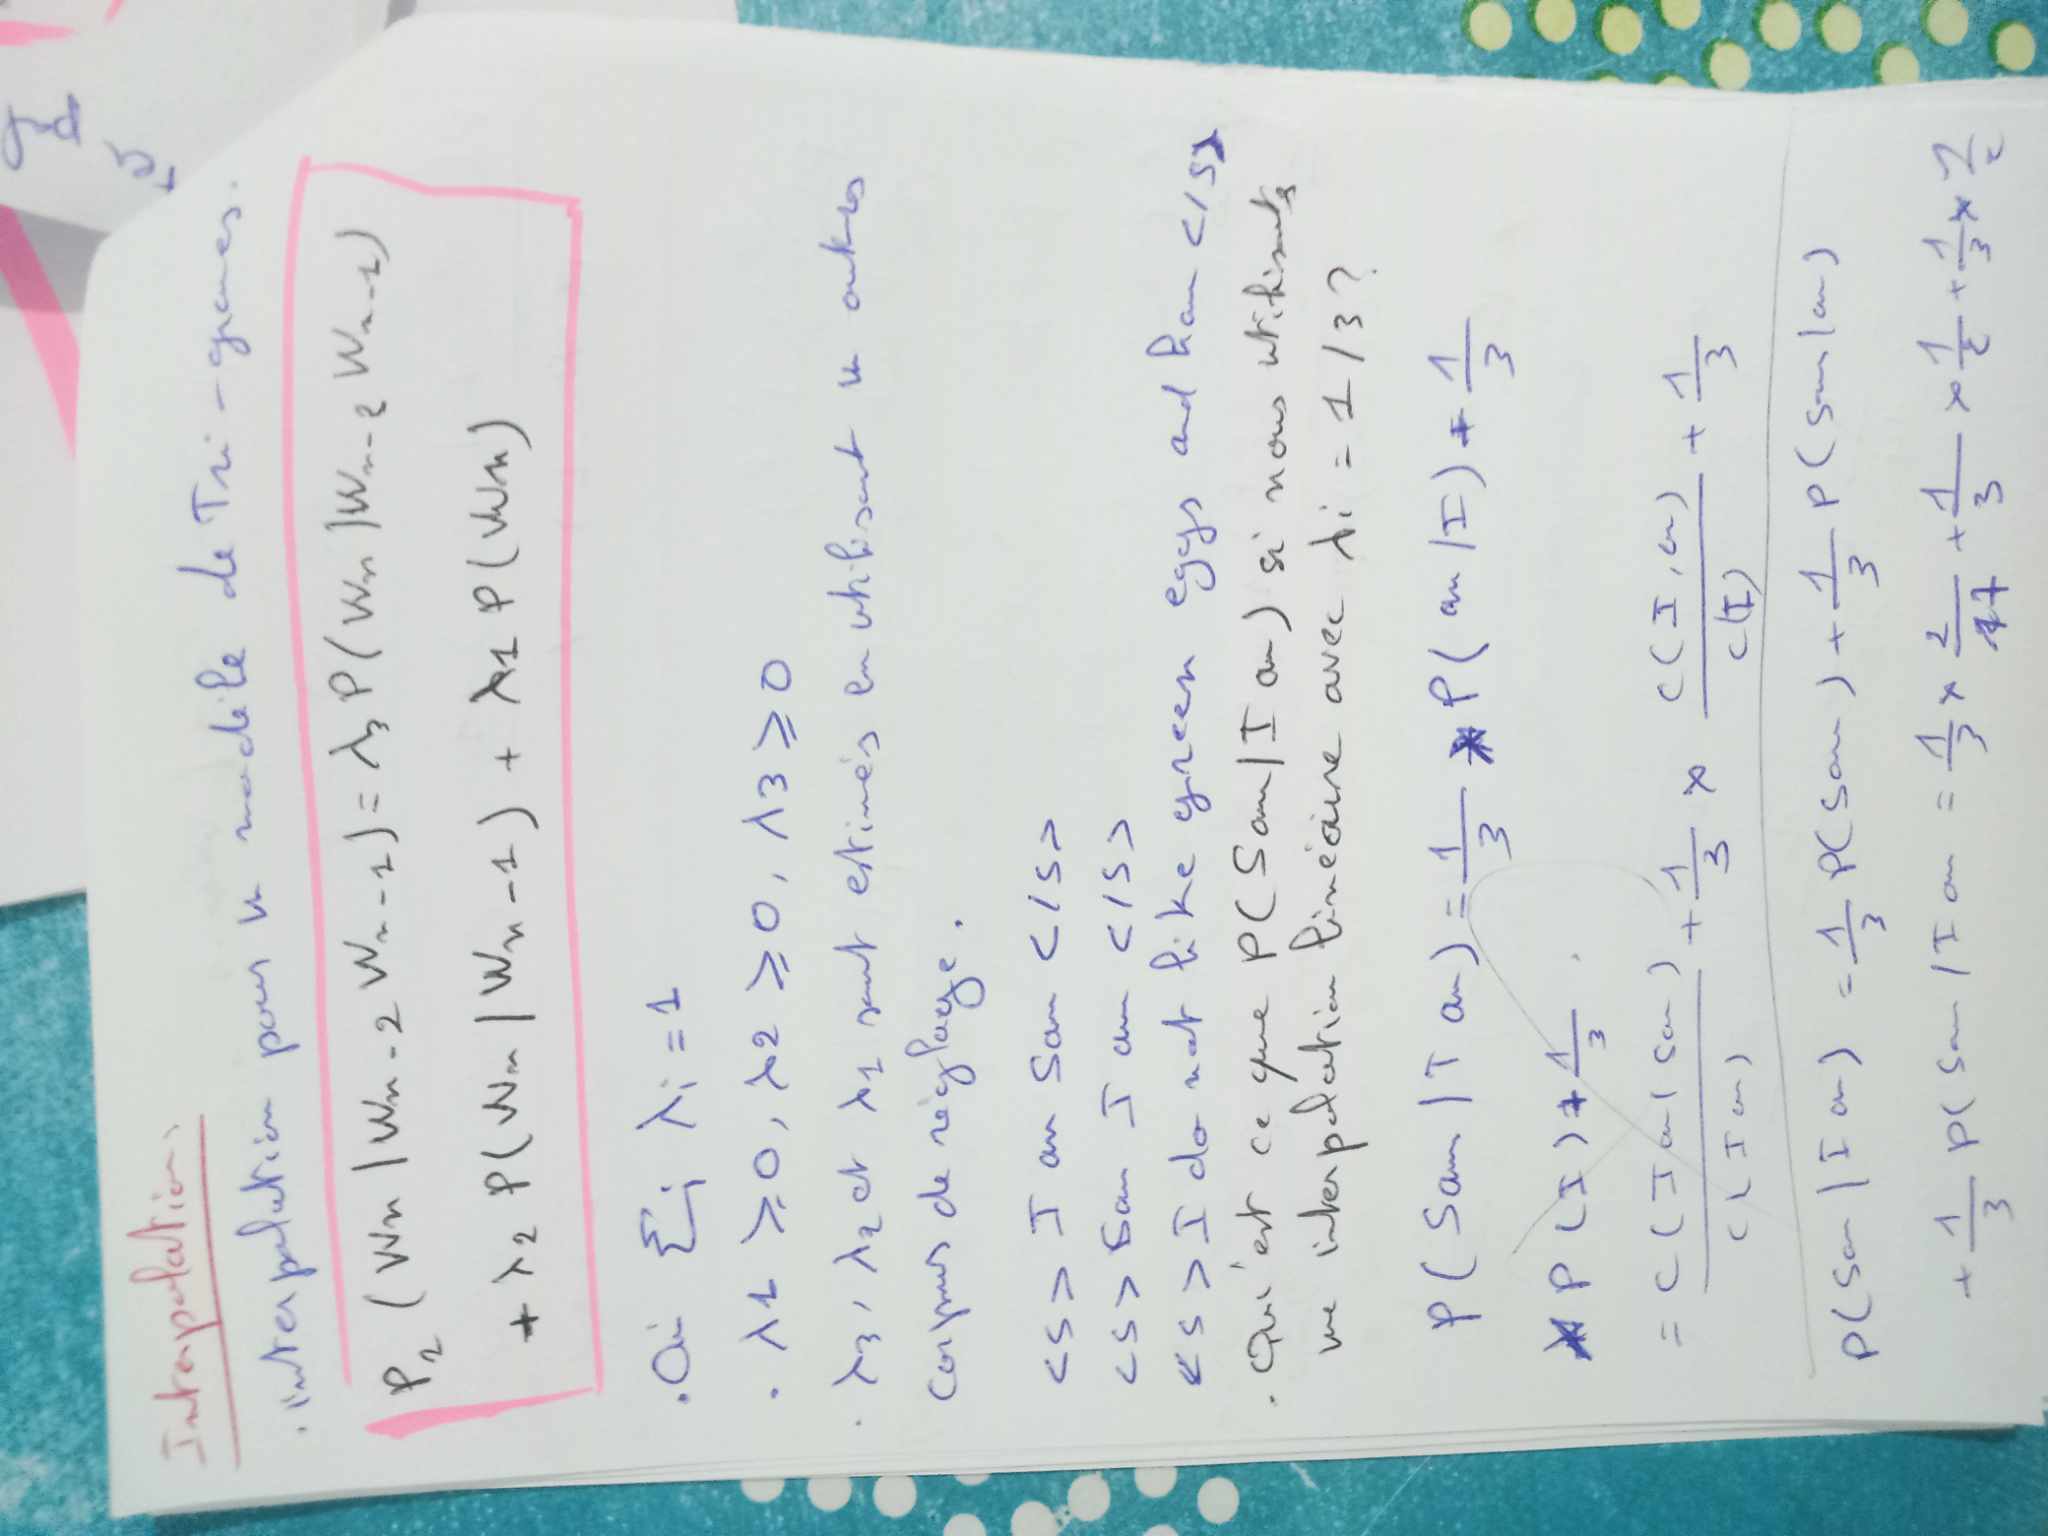 Interpolation,
. interpolation pour un modèle de Tri-grammes.
P₂ (Wn | Wn-2 Wn-1) = λ₃ P(Wn | Wn-2 Wn-1)
+ λ₂ P(Wn | Wn-1) + λ1 P(Wn)
. Où Σᵢ λᵢ = 1
. λ1 ≥ 0, λ2 ≥ 0, λ3 ≥ 0
. λ₃, λ₂ et λ₁ sont estimés en utilisant un autres
corpus de réglage.
<s> I am Sam </s>
<s> Sam I am </s>
<s> I do not like green eggs and ham </s>
. Qu'est ce que P(Sam | I am) si nous utilisants
une interpolation linéaire avec λi = 1/3?
P(Sam | I am) = 1/3 * P(am | I) + 1/3
* P(I) + 1/3 .
= C(I am | Sam) / C(I am) + 1/3 × C(I, am) / C(I) + 1/3
P(Sam | I am) = 1/3 P(Sam) + 1/3 P(Sam | am)
+ 1/3 P(Sam | I am = 1/3 × 2/17 + 1/3 × 1/2 + 1/3 × 1/2